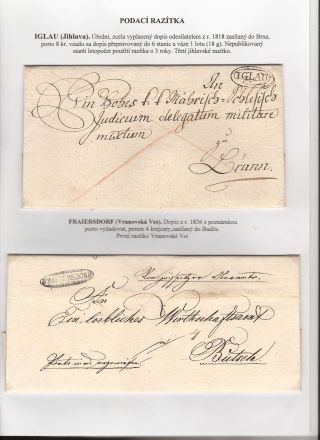 PODACÍ RAZÍTKA
IGLAU (Jihlava). Úřední, zcela vyplacený dopis odesílatelem z r. 1818 zasílaný do Brna,
porto 8 kr. vzadu za dopis přepravovaný do 6 stanic a váze 1 lotu (18 g). Nepublikovaný
starší letopočet použití razítka o 3 roky. Třetí jihlavské razítko.
IGLAU
An
Ein Hohes k. k. Mährisch-Schlesisch
Judicium delegatum militare
mixtum
zu
Brünn.
FRAIERSDORF (Vranovská Ves). Dopis z r. 1836 s poznámkou
porto vyžadovat, perem 4 krejcary, zasílaný do Budče.
První razítko Vranovské Vsi
FRAIERSDORF
An
Ein löbliches Wirthschaftsamt
Butsch